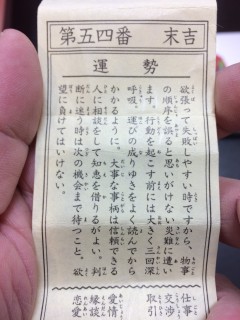 第五四番 末吉
運勢
欲張って失敗しやすい時ですから、物事
の順序を誤ると思いがけない災難に遭い
ます。行動を起こす前には大きく三回深
呼吸。運びの成りゆきをよく読んでから
かかるように。大事な事柄は信頼できる
人に相談をして知恵を借りるがよい。判
断に迷う時は次の機会まで待つこと、欲
望に負けてはいけない。
仕事
交渉
取引
愛情
縁談
恋愛